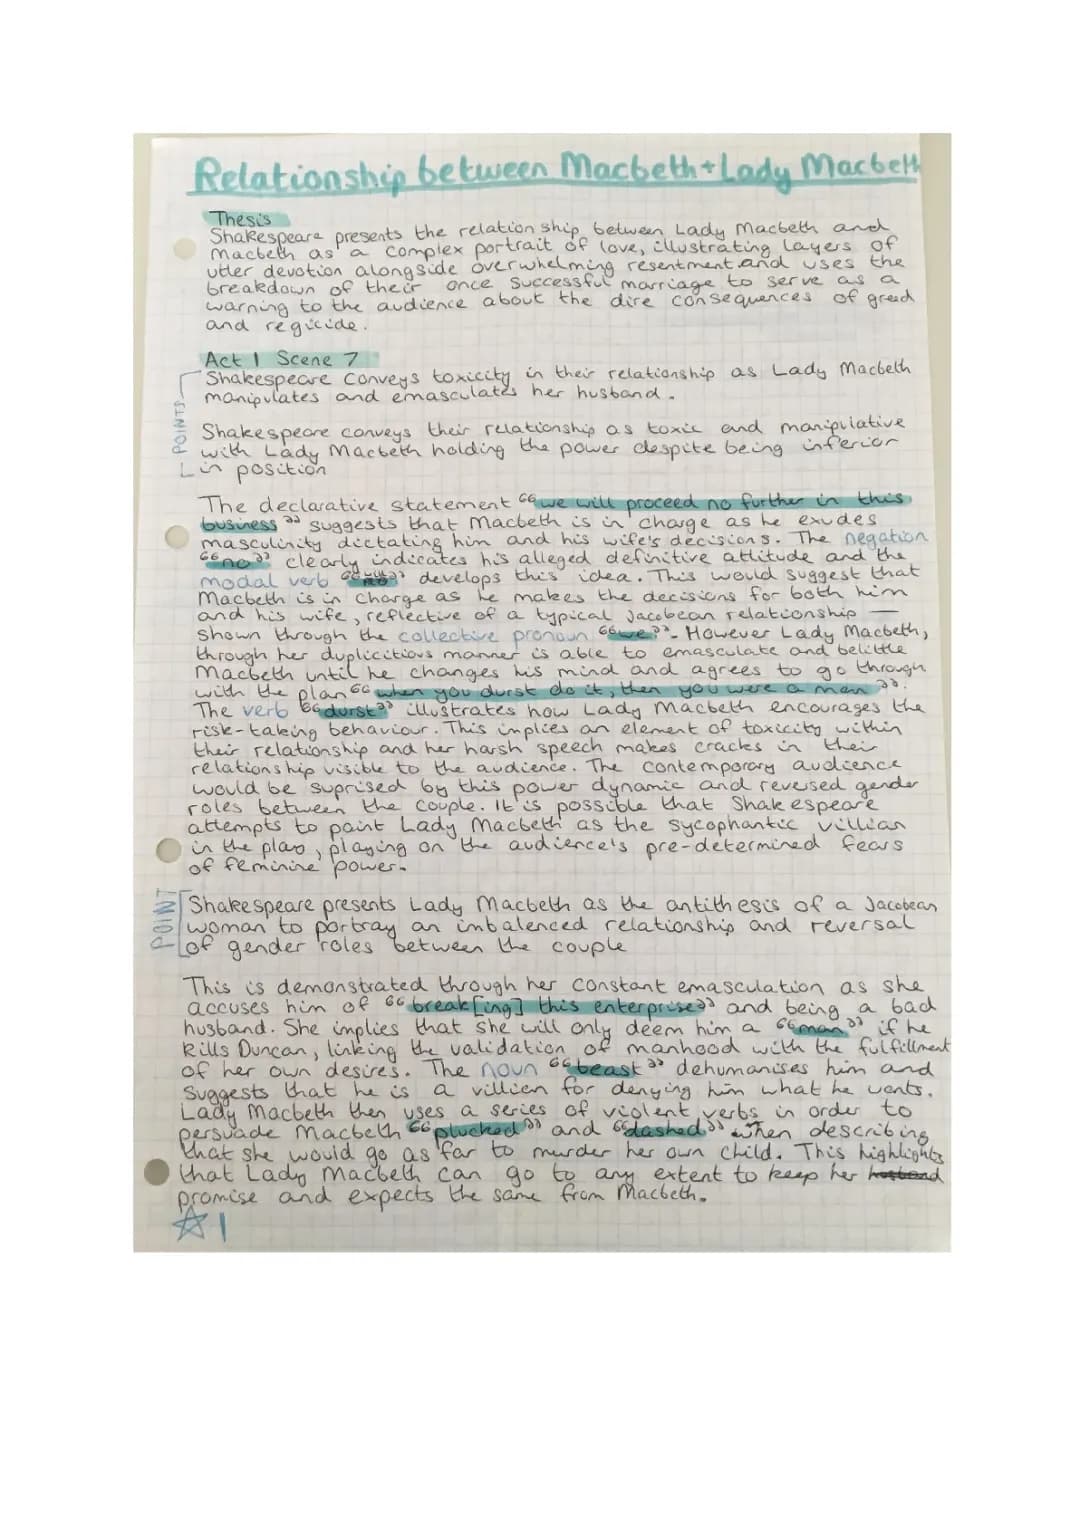 Relationship between Macbeth + Lady Macbeth
Thesis
Shakespeare presents the relationship between Lady Macbeth and
Macbeth as a complex portrait of love, illustrating layers of
utter devotion alongside overwhelming resentment and uses the
breakdown of their once successful marriage to serve as a
warning to the audience about the dire consequences of greed
and regicide.
Act 1 Scene 7
POINTS
Shakespeare conveys toxicity in their relationship as Lady Macbeth
manipulates and emasculates her husband.
Shakespeare conveys their relationship as toxic and manipulative
with Lady Macbeth holding the power despite being inferior
in position
The declarative statement “we will proceed no further in this
business” suggests that Macbeth is in charge as he exudes
masculinity dictating him and his wife's decisions. The negation
“no” clearly indicates his alleged definitive attitude and the
modal verb “will” develops this idea. This would suggest that
Macbeth is in charge as he makes the decisions for both him
and his wife, reflective of a typical Jacobean relationship —
shown through the collective pronoun “we”. However Lady Macbeth,
through her duplicitious manner is able to emasculate and belittle
Macbeth until he changes his mind and agrees to go through
with the plan “when you durst do it, then you were a man”.
The verb “durst” illustrates how Lady Macbeth encourages the
risk-taking behaviour. This implies an element of toxicity within
their relationship and her harsh speech makes cracks in their
relationship visible to the audience. The contemporary audience
would be suprised by this power dynamic and reversed gender
roles between the couple. It is possible that Shakespeare
attempts to paint Lady Macbeth as the sycophantic villian
in the play, playing on the audience's pre-determined fears
of feminine power.
POINT
Shakespeare presents Lady Macbeth as the antithesis of a Jacobean
woman to portray an imbalenced relationship and reversal
of gender roles between the couple
This is demonstrated through her constant emasculation as she
accuses him of “break[ing] this enterprise” and being a bad
husband. She implies that she will only deem him a “man” if he
kills Duncan, linking the validation of manhood with the fulfillment
of her own desires. The noun “beast” dehumanises him and
suggests that he is a villian for denying him what he wants.
Lady Macbeth then uses a series of violent verbs in order to
persuade Macbeth “plucked” and “dashed” when describing
that she would go as far to murder her own child. This highlights
that Lady Macbeth can go to any extent to keep her husband
promise and expects the same from Macbeth.
☆1